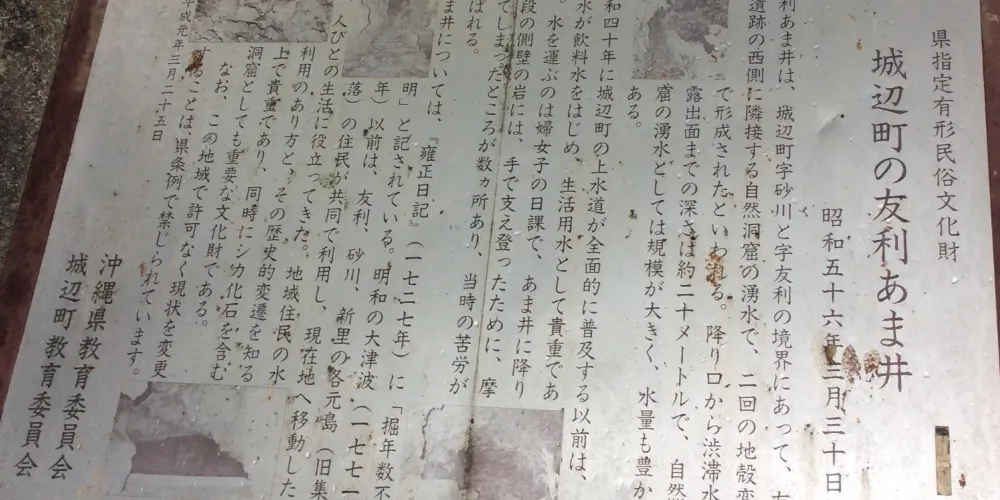 県指定有形民俗文化財
城辺町の友利あま井
昭和五十六年三月三十日
利あま井は、城辺町字砂川と字友利の境界にあって、
遺跡の西側に隣接する自然洞窟の湧水で、二回の地殻変
で形成されたといわれる。降り口から渋滞水
露出面までの深さは約二十メートルで、自然
窟の湧水としては規模が大きく、水量も豊か
ある。
和四十年に城辺町の上水道が全面的に普及する以前は、
水が飲料水をはじめ、生活用水として貴重であ
。水を運ぶのは婦女子の日課で、あま井に降り
段の側壁の岩には、手で支え登ったために、摩
てしまったところが数ヵ所あり、当時の苦労が
ばれる。
ま井については、『雍正日記』(一七二七年)に「掘年数不
明」と記されている。明和の大津波(一七七一
年)以前は、友利、砂川、新里の各元島(旧集
落)の住民が共同で利用し、現在地へ移動した
人びとの生活に役立ってきた。地域住民の水
利用のあり方と、その歴史的変遷を知る
上で貴重であり、同時にシカ化石を含む
洞窟としても重要な文化財である。
なお、この地域で許可なく現状を変更
することは、県条例で禁じられています。
平成元年三月二十五日
沖縄県教育委員会
城辺町教育委員会